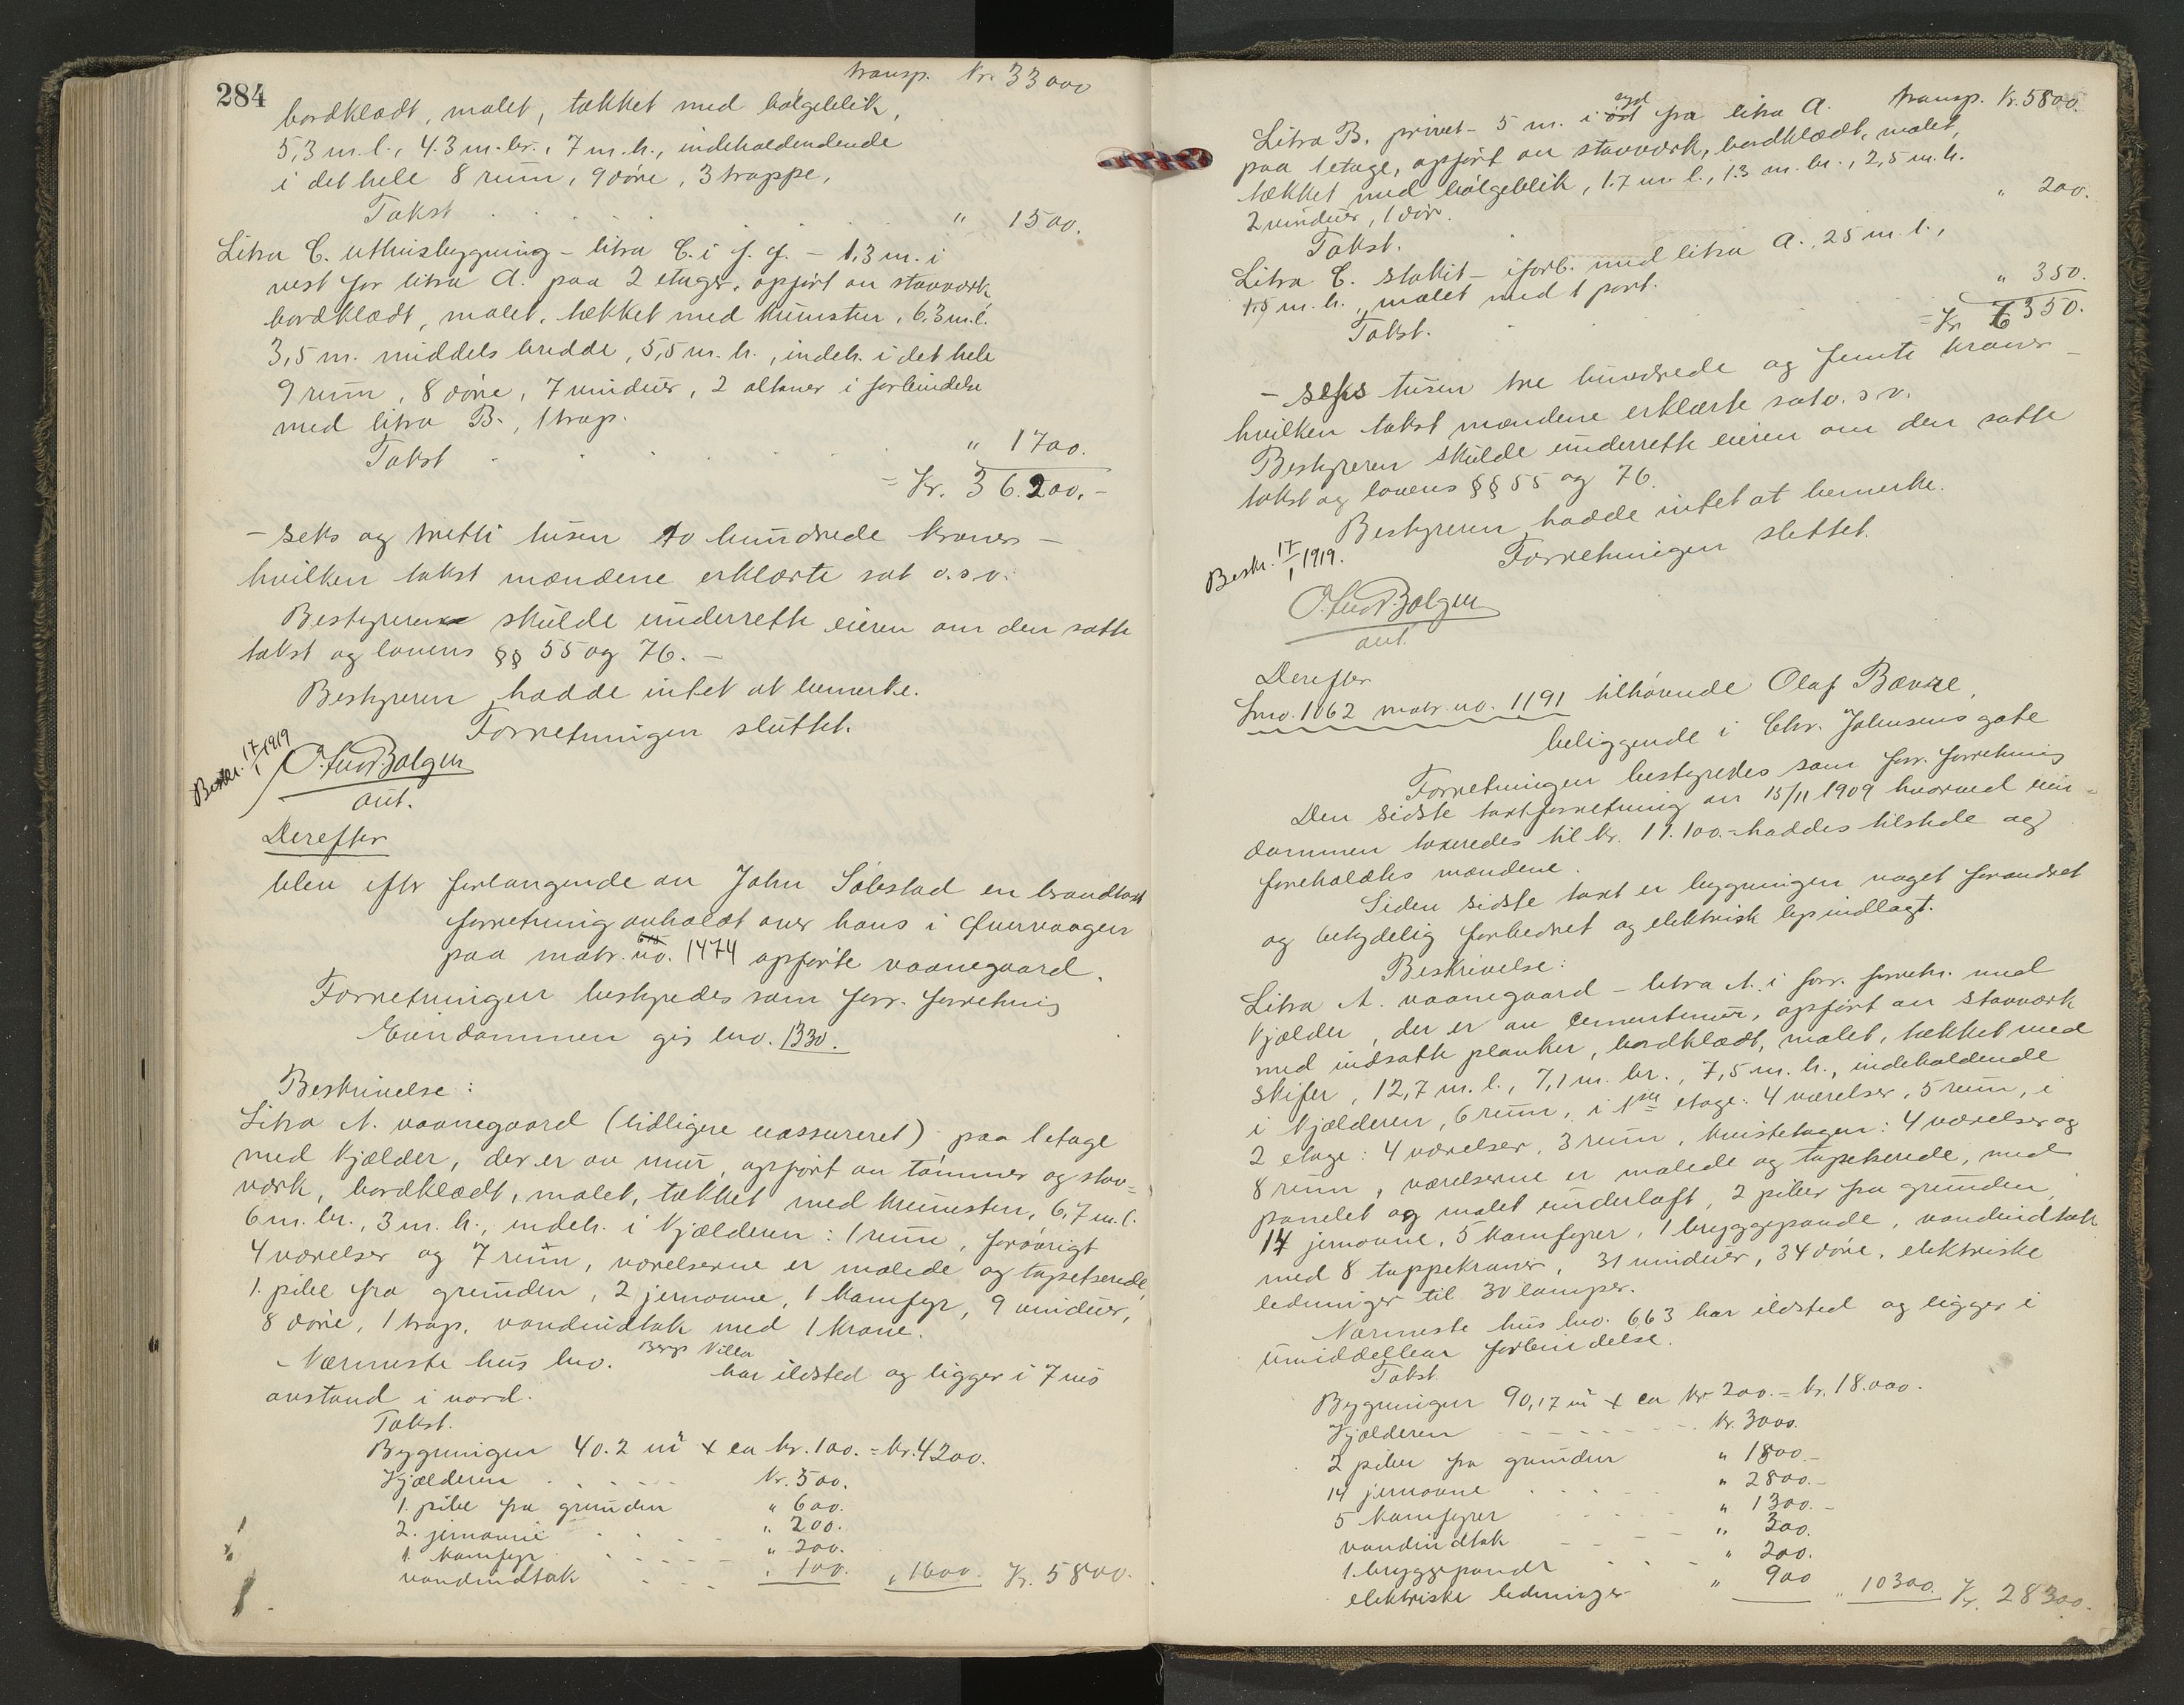 284
transp. Kr. 33000
bordklædt, malet, tækket med bølgeblik,
5,3 m. l., 4.3 m. br., 7 m. h., indeholdendende
i det hele 8 rum, 9 døre, 3 trappe,
Takst . . . . . " 1500.
Litra C. uthusbygning – litra C. i f. f. – 1,3 m. i
vest for litra A. paa 2 etager, opført av stavværk
bordklædt, malet, tækket med kunsten, 6,3 m. l.
3,5 m. middels bredde, 5,5 m. h., indeh. i det hele
9 rum, 8 døre, 7 vinduer, 2 altaner i forbindelse
med litra B., 1 trap.
Takst . . . . . " 1700.
= Kr. 36.200. –
– seks og tretti tusen to hundrede kroner –
hvilken takst mændene erklærte sat o. s. v.
Bestyreren skulde underrette eieren om den satte
takst og lovens §§ 55 og 76. –
Bestyreren hadde intet at bemerke.
Forretningen sluttet.
Beskr. 17/1 1919
aut.
Derefter
blev efter forlangende av John Solestad en brandtakst
forretning avholdt over hans i
paa matr. no. 1474 opførte vaanegaard.
Forretningen bestyredes som forr. forretning
Eiendommen gis bno. 1330.
Beskrivelse:
Litra A. vaanegaard (tidligere uassureret) paa 1 etage
med kjælder, der er av mur, opført av tømmer og stav=
værk, bordklædt, malet, tækket med kunsten, 6,7 m. l.
6 m. br., 3 m. h., indeh. i kjælderen: 1 rum, forøvrigt
4 værelser og 7 rum, værelserne er malede og tapetserede,
1. pibe fra grunden, 2 jernovne, 1 komfyr, 9 vinduer,
8 døre, 1 trap, vandindtak med 1 krane.
– Nærmeste hus bno. Bergs Villa har ildsted og ligger i 7 ms
avstand i nord.
Takst.
Bygningen 40.2 m² x ca kr. 100. = kr. 4200.
Kjælderen . . . . Kr. 500.
1. pibe fra grunden " 600.
2. jernovne . . . . " 200.
1. komfyr . . . . " 200.
vandindtak . . . " 100. " 1600. Kr. 5800.
transp. Kr. 5800.
Litra B. privet – 5 m. i øst syd fra litra A.
paa 1 etage, opført av stavværk, bordklædt, malet,
tækket med bølgeblik, 1.7 m. l., 1.3 m. br., 2,5 m. h.
2 vinduer, 1 dør.
Takst. " 200.
Litra C. stakit – i forb. med litra A., 25 m. l.,
1.5 m. h., malet med 1 port.
Takst. " 350.
= Kr 6350.
– seks tusen tre hundrede og femti kroner –
hvilken takst mændene erklærte sat o. s. v.
Bestyreren skulde underrette eieren om den satte
takst og lovens §§ 55 og 76.
Bestyreren hadde intet at bemerke.
Forretningen sluttet.
Beskr. 17/1 1919.
aut.
Derefter
bno. 1062 matr. no. 1191 tilhørende Olaf Bævre,
beliggende i Chr. Johnsens gate
Forretningen bestyredes som forr. forretning
Den sidste taxtforretning av 15/11 1909 hvorved eien=
dommen taxeredes til kr. 17.100. – haddes tilstede og
foreholdtes mændene.
Siden sidste taxt er bygningen noget forandret
og betydelig forbedret og elektrisk lys indlagt.
Beskrivelse:
Litra A. vaanegaard – litra A. i forr. forretn. med
kjælder, der er av cementmur, opført av stavværk
med indsatte planker, bordklædt, malet, tækket med
skifer, 12,7 m. l., 7,1 m. br., 7,5 m. h., indeholdende
i kjælderen, 6 rum, i 1ste etage: 4 værelser, 5 rum, i
2 etage: 4 værelser, 3 rum, kvistetagen: 4 værelser og
8 rum, værelserne er malede og tapetserede, med
panelet og malet underloft, 2 piber fra grunden,
14 jernovne, 5 komfyrer, 1 bryggepande, vandindtak
med 8 tappekraner, 31 vinduer, 34 døre, elektriske
ledninger til 30 lamper.
Nærmeste hus bno. 663 har ildsted og ligger i
umiddelbar forbindelse.
Takst.
Bygningen 90,17 m² x ca kr 200. = kr. 18.000.
Kjælderen . . . . Kr. 3000.
2 piber fra grunden " 1800. –
14 jernovne . . . . " 2800. –
5 komfyrer . . . . " 1300. –
vandindtak . . . . " 300.
1. bryggepande . . . " 200.
elektriske ledninger " 900 " 10300. Kr. 28300.